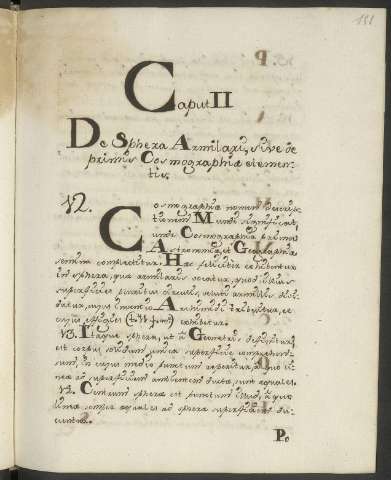 151
Caput II
De Sphera Armilari, sive de
primis Cosmographiæ elemen-
tis.
12. Cosmographiæ nomen descrip-
tionem Mundi significat,
unde Cosmographia
Astronomiam et Geographiam
complectitur. Hæc exhibentur
in sphera, quæ armilaris vocatur, quod illius
superficies circulis, veluti armillis
datur, cujus inventio Archimedi tribuitur, et
cujus effigies exhibetur.
13. Itaque sphera, ut a Geometris definitur,
est corpus solidum unica superficie comprehen-
sum, in cujus medio punctum reperitur, a quo li-
neæ ad superficiem ambientem ductæ, sunt æquales.
14. Centrum spheræ est punctum illud, a quo
lineæ semper æquales ad spheræ superficiem du-
cuntur.
Po